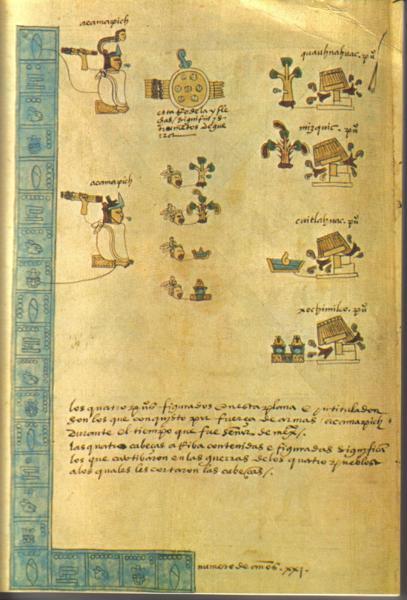 acamapich
quauhnahuac. puo
mizquic. puo
acamapich
cuitlahuac. puo
xochimilco. puo
los quatro puos figurados en esta plana e yntitulados
son los que conquisto por fuerça de armas / acamapich
durante el tiempo que fue señor de mexico /.
las quatro cabeças arriba contenidas e figuradas significan
los que cautibaron en las guerras de los quatro pueblos
a los quales les cortaron las cabeças /.
numero de años. xxi.